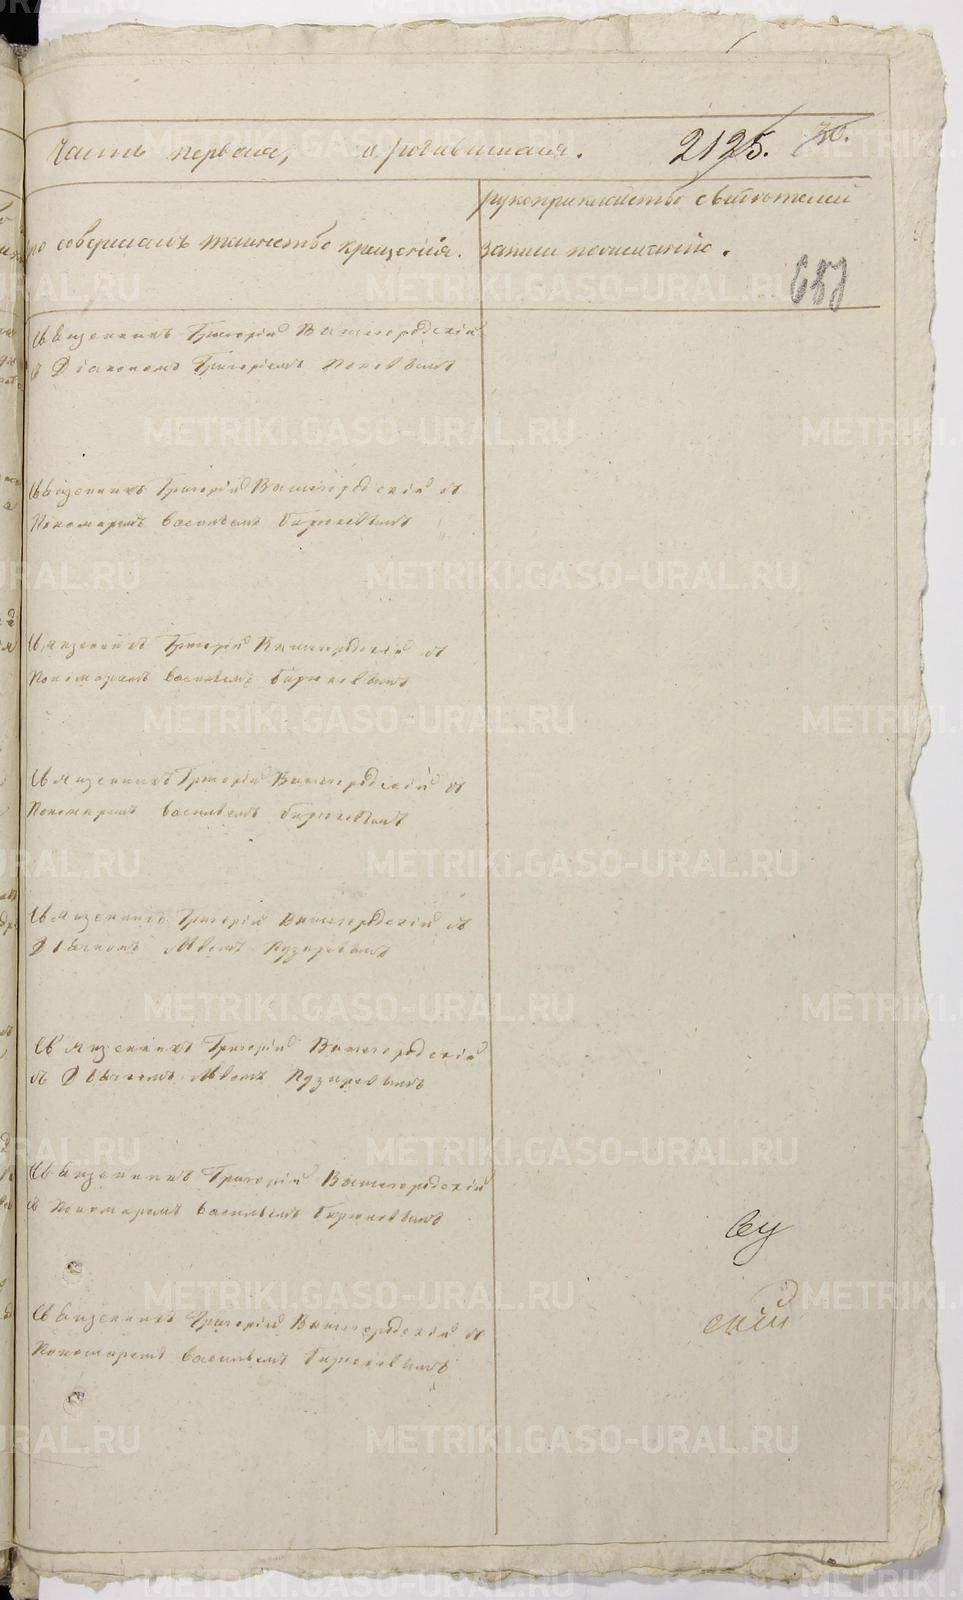 Часть первая, о родившихся. 2125. 70.
кто совершалъ таинство крещенія.
рукоприкладство свидѣтелей
записи по желанію.
Священникъ Григорій Вышегородскій
съ Діакономъ Григоріемъ Поповымъ
Священникъ Григорій Вышегородскій съ
Пономаремъ Василіемъ Бирюковымъ
Священникъ Григорій Вышегородскій съ
Пономаремъ Василіемъ Бирюковымъ
Священникъ Григорій Вышегородскій съ
Пономаремъ Василіемъ Бирюковымъ
Священникъ Григорій Вышегородскій съ
Дьячкомъ Пузыревымъ
Священникъ Григорій Вышегородскій
съ Дьячкомъ Пузыревымъ
Священникъ Григорій Вышегородскій
съ Пономаремъ Василіемъ Бирюковымъ
Священникъ Григорій Вышегородскій съ
Пономаремъ Василіемъ Бирюковымъ
скій
METRIKI.GASO-URAL.RU